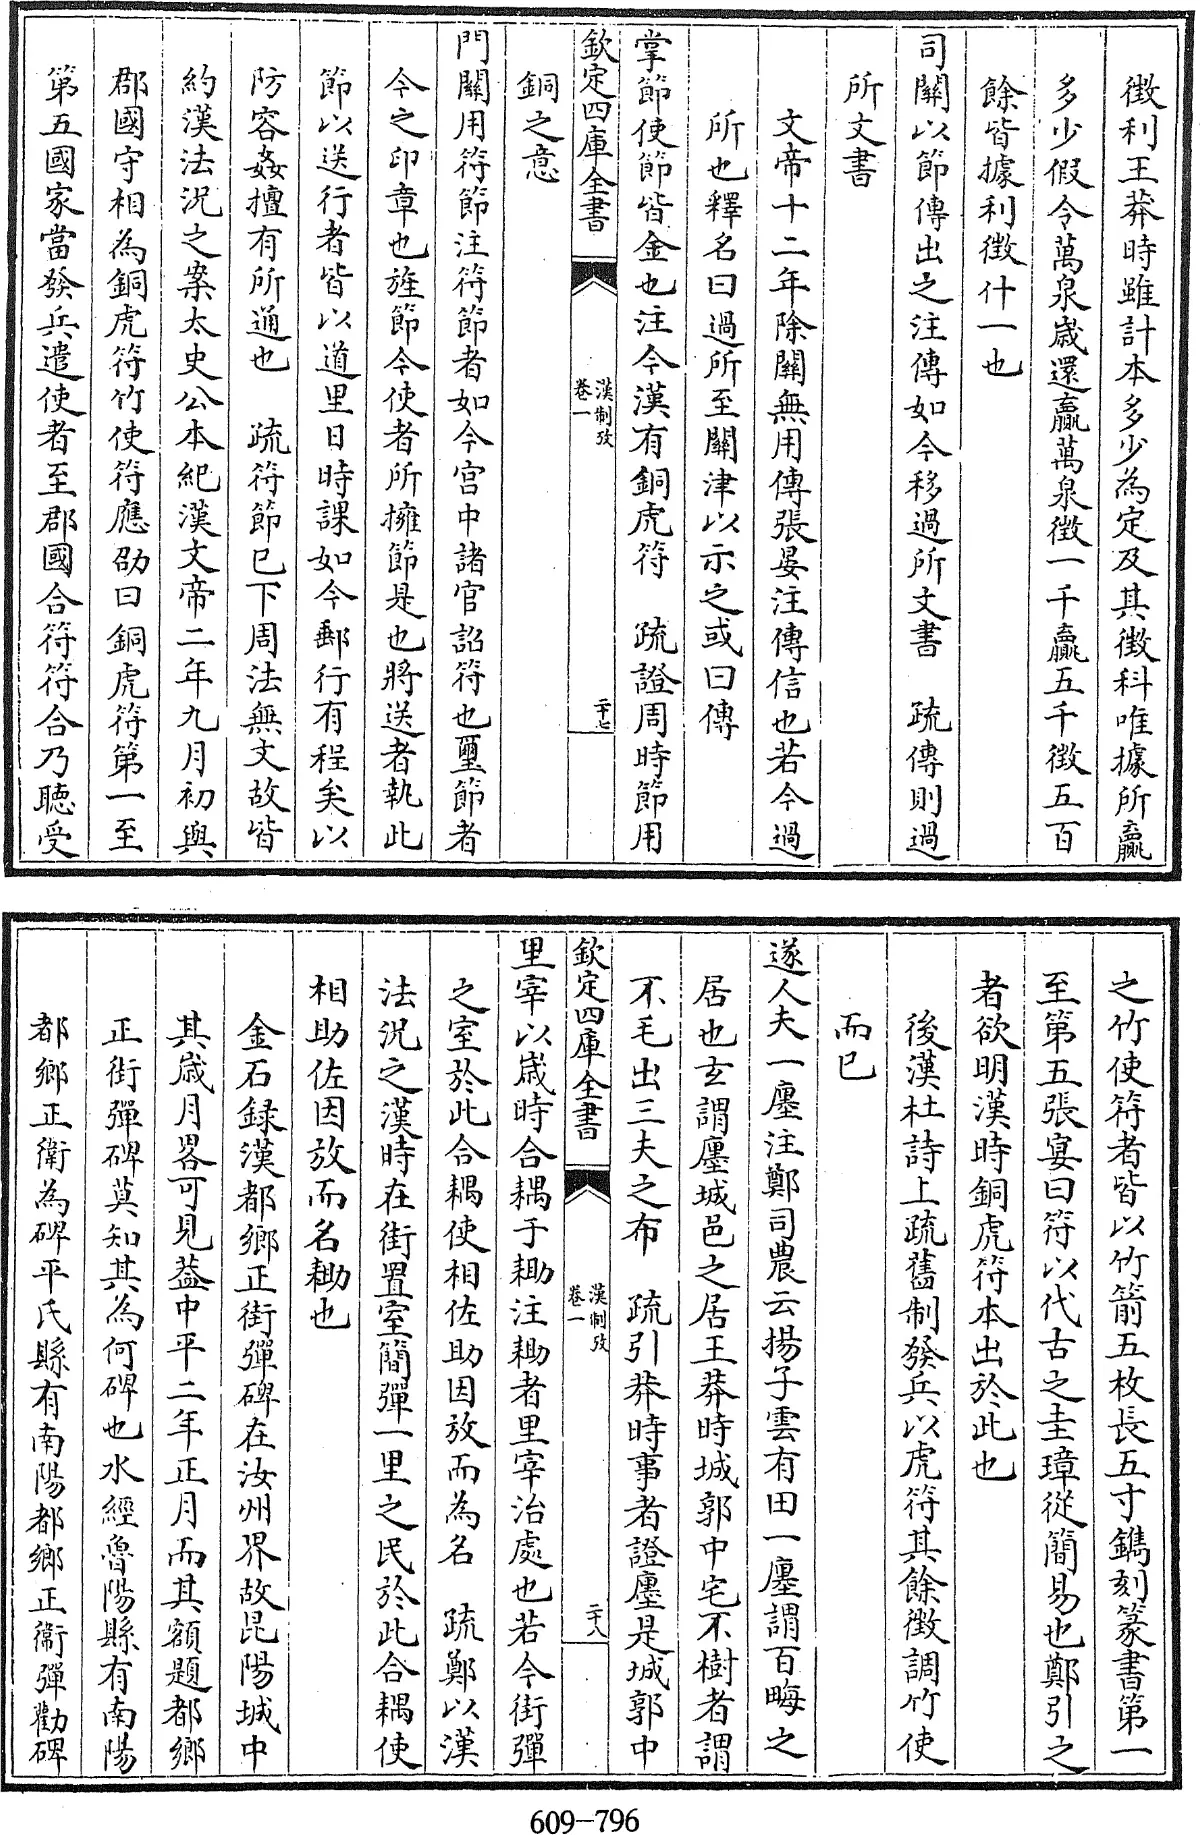 徵利王莽時雖計本多少為定及其徵科唯據所贏
多少假令萬泉歲還贏萬泉徵一千贏五千徵五百
餘皆據利徵什一也
司關以節傳出之注傳如今移過所文書　疏傳則過
所文書
文帝十二年除關無用傳張晏注傳信也若今過
所也釋名曰過所至關津以示之或曰傳
掌節使節皆金也注今漢有銅虎符　疏證周時節用
欽定四庫全書
漢制攷
卷一
二十七
銅之意
門關用符節注符節者如今宮中諸官詔符也璽節者
今之印章也旌節今使者所擁節是也將送者執此
節以送行者皆以道里日時課如今郵行有程矣以
防容姦擅有所通也　疏符節已下周法無文故皆
約漢法況之案太史公本紀漢文帝二年九月初與
郡國守相為銅虎符竹使符應劭曰銅虎符第一至
第五國家當發兵遣使者至郡國合符符合乃聽受
之竹使符者皆以竹箭五枚長五寸鐫刻篆書第一
至第五張宴曰符以代古之圭璋從簡易也鄭引之
者欲明漢時銅虎符本出於此也
後漢杜詩上疏舊制發兵以虎符其餘徵調竹使
而已
遂人夫一廛注鄭司農云揚子雲有田一廛謂百畮之
居也玄謂廛城邑之居王莽時城郭中宅不樹者謂
不毛出三夫之布　疏引莽時事者證廛是城郭中
欽定四庫全書
漢制攷
卷一
二十八
里宰以歲時合耦于耡注耡者里宰治處也若今街彈
之室於此合耦使相佐助因放而為名　疏鄭以漢
法況之漢時在街置室簡彈一里之民於此合耦使
相助佐因放而名耡也
金石録漢都鄉正街彈碑在汝州界故昆陽城中
其歲月畧可見葢中平二年正月而其額題都鄉
正街彈碑莫知其為何碑也水經魯陽縣有南陽
都鄉正衛為碑平氏縣有南陽都鄉正衛彈勸碑
609-796